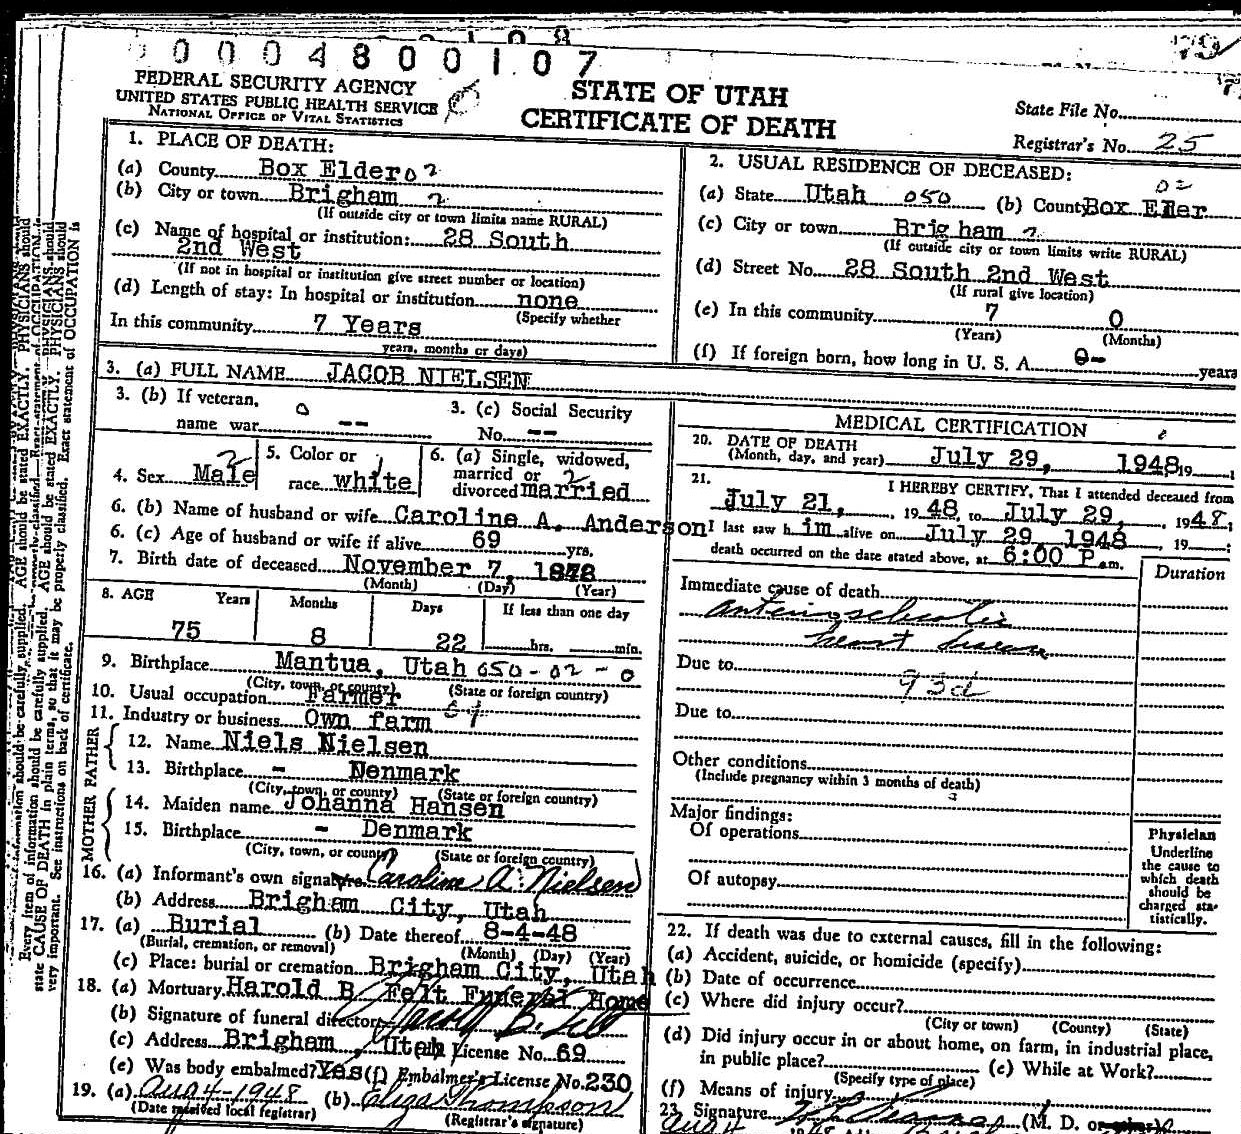 0 0 0 4 8 0 0 1 0 7
FEDERAL SECURITY AGENCY
UNITED STATES PUBLIC HEALTH SERVICE
NATIONAL OFFICE OF VITAL STATISTICS
STATE OF UTAH
CERTIFICATE OF DEATH
79
State File No.
Registrar's No. 25
1. PLACE OF DEATH:
(a) County Box Elder 02
(b) City or town Brigham 2
(If outside city or town limits name RURAL)
(c) Name of hospital or institution: 28 South
2nd West
(If not in hospital or institution give street number or location)
(d) Length of stay: In hospital or institution none
(Specify whether
In this community 7 Years
years, months or days)
2. USUAL RESIDENCE OF DECEASED:
02
(a) State Utah 050 (b) County Box Eler
(c) City or town Brigham 2
(If outside city or town limits write RURAL)
(d) Street No. 28 South 2nd West
(If rural give location)
(e) In this community 7 0
(Years) (Months)
(f) If foreign born, how long in U. S. A. 0- years
3. (a) FULL NAME JACOB NIELSEN
3. (b) If veteran, 0
name war --
3. (c) Social Security
No. --
4. Sex Male 2
5. Color or 1
race white
6. (a) Single, widowed,
married or 2
divorced married
6. (b) Name of husband or wife Caroline A. Anderson
6. (c) Age of husband or wife if alive 69 yrs.
7. Birth date of deceased November 7, 1872
(Month) (Day) (Year)
8. AGE Years Months Days If less than one day
75 8 22 hrs. min.
9. Birthplace Mantua, Utah 050-02-0
(City, town, or county) (State or foreign country)
10. Usual occupation Farmer
11. Industry or business Own farm
FATHER
12. Name Niels Nielsen
13. Birthplace - Denmark
(City, town, or county) (State or foreign country)
MOTHER
14. Maiden name Johanna Hansen
15. Birthplace - Denmark
(City, town, or county) (State or foreign country)
16. (a) Informant's own signature Caroline A. Nielsen
(b) Address Brigham City, Utah
17. (a) Burial (b) Date thereof 8-4-48
(Burial, cremation, or removal) (Month) (Day) (Year)
(c) Place: burial or cremation Brigham City, Utah
18. (a) Mortuary Harold B Felt Funeral Home
(b) Signature of funeral director Harold B. Felt
(c) Address Brigham, Utah (d) License No. 69
(e) Was body embalmed? Yes (f) Embalmer's License No. 230
19. (a) Aug 4-1948 (b) Eliza Thompson
(Date received local registrar) (Registrar's signature)
MEDICAL CERTIFICATION
20. DATE OF DEATH
(Month, day, and year) July 29, 1948, 19
21. I HEREBY CERTIFY, That I attended deceased from
July 21, 1948, to July 29, 1948;
I last saw him alive on July 29, 1948, 19 ;
death occurred on the date stated above, at 6:00 P.m.
Duration
Immediate cause of death
arteriosclerotic
heart disease
Due to
93d
Due to
Other conditions
(Include pregnancy within 3 months of death)
Major findings:
Of operations
Of autopsy
Physician
Underline
the cause to
which death
should be
charged sta-
tistically.
22. If death was due to external causes, fill in the following:
(a) Accident, suicide, or homicide (specify)
(b) Date of occurrence
(c) Where did injury occur?
(City or town) (County) (State)
(d) Did injury occur in or about home, on farm, in industrial place,
in public place? (e) While at Work?
(Specify type of place)
(f) Means of injury
23. Signature (M. D. or
Aug 4 1948
Every item of information should be carefully supplied. AGE should be stated EXACTLY. PHYSICIANS should
state CAUSE OF DEATH in plain terms, so that it may be properly classified. Exact statement of OCCUPATION is
very important. See instructions on back of certificate.